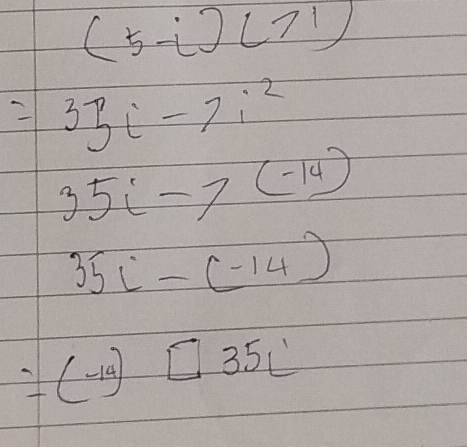 (5-i)(7i)
= 35i - 7i²
35i - 7(-14)
35i - (-14)
= (-14) □ 35i